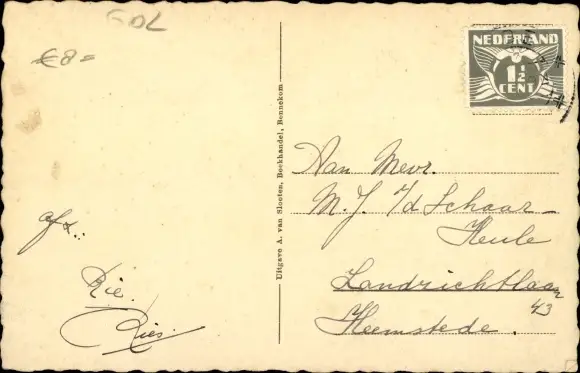 GDL
€8=
NEDERLAND
1½
CENT
Aan Mevr.
M. J. v/d Schaar–
Heule
Landrichtlaan
43
Heemstede.
afz.:
Rie.
Ries.
Uitgave A. van Slooten, Boekhandel, Bennekom